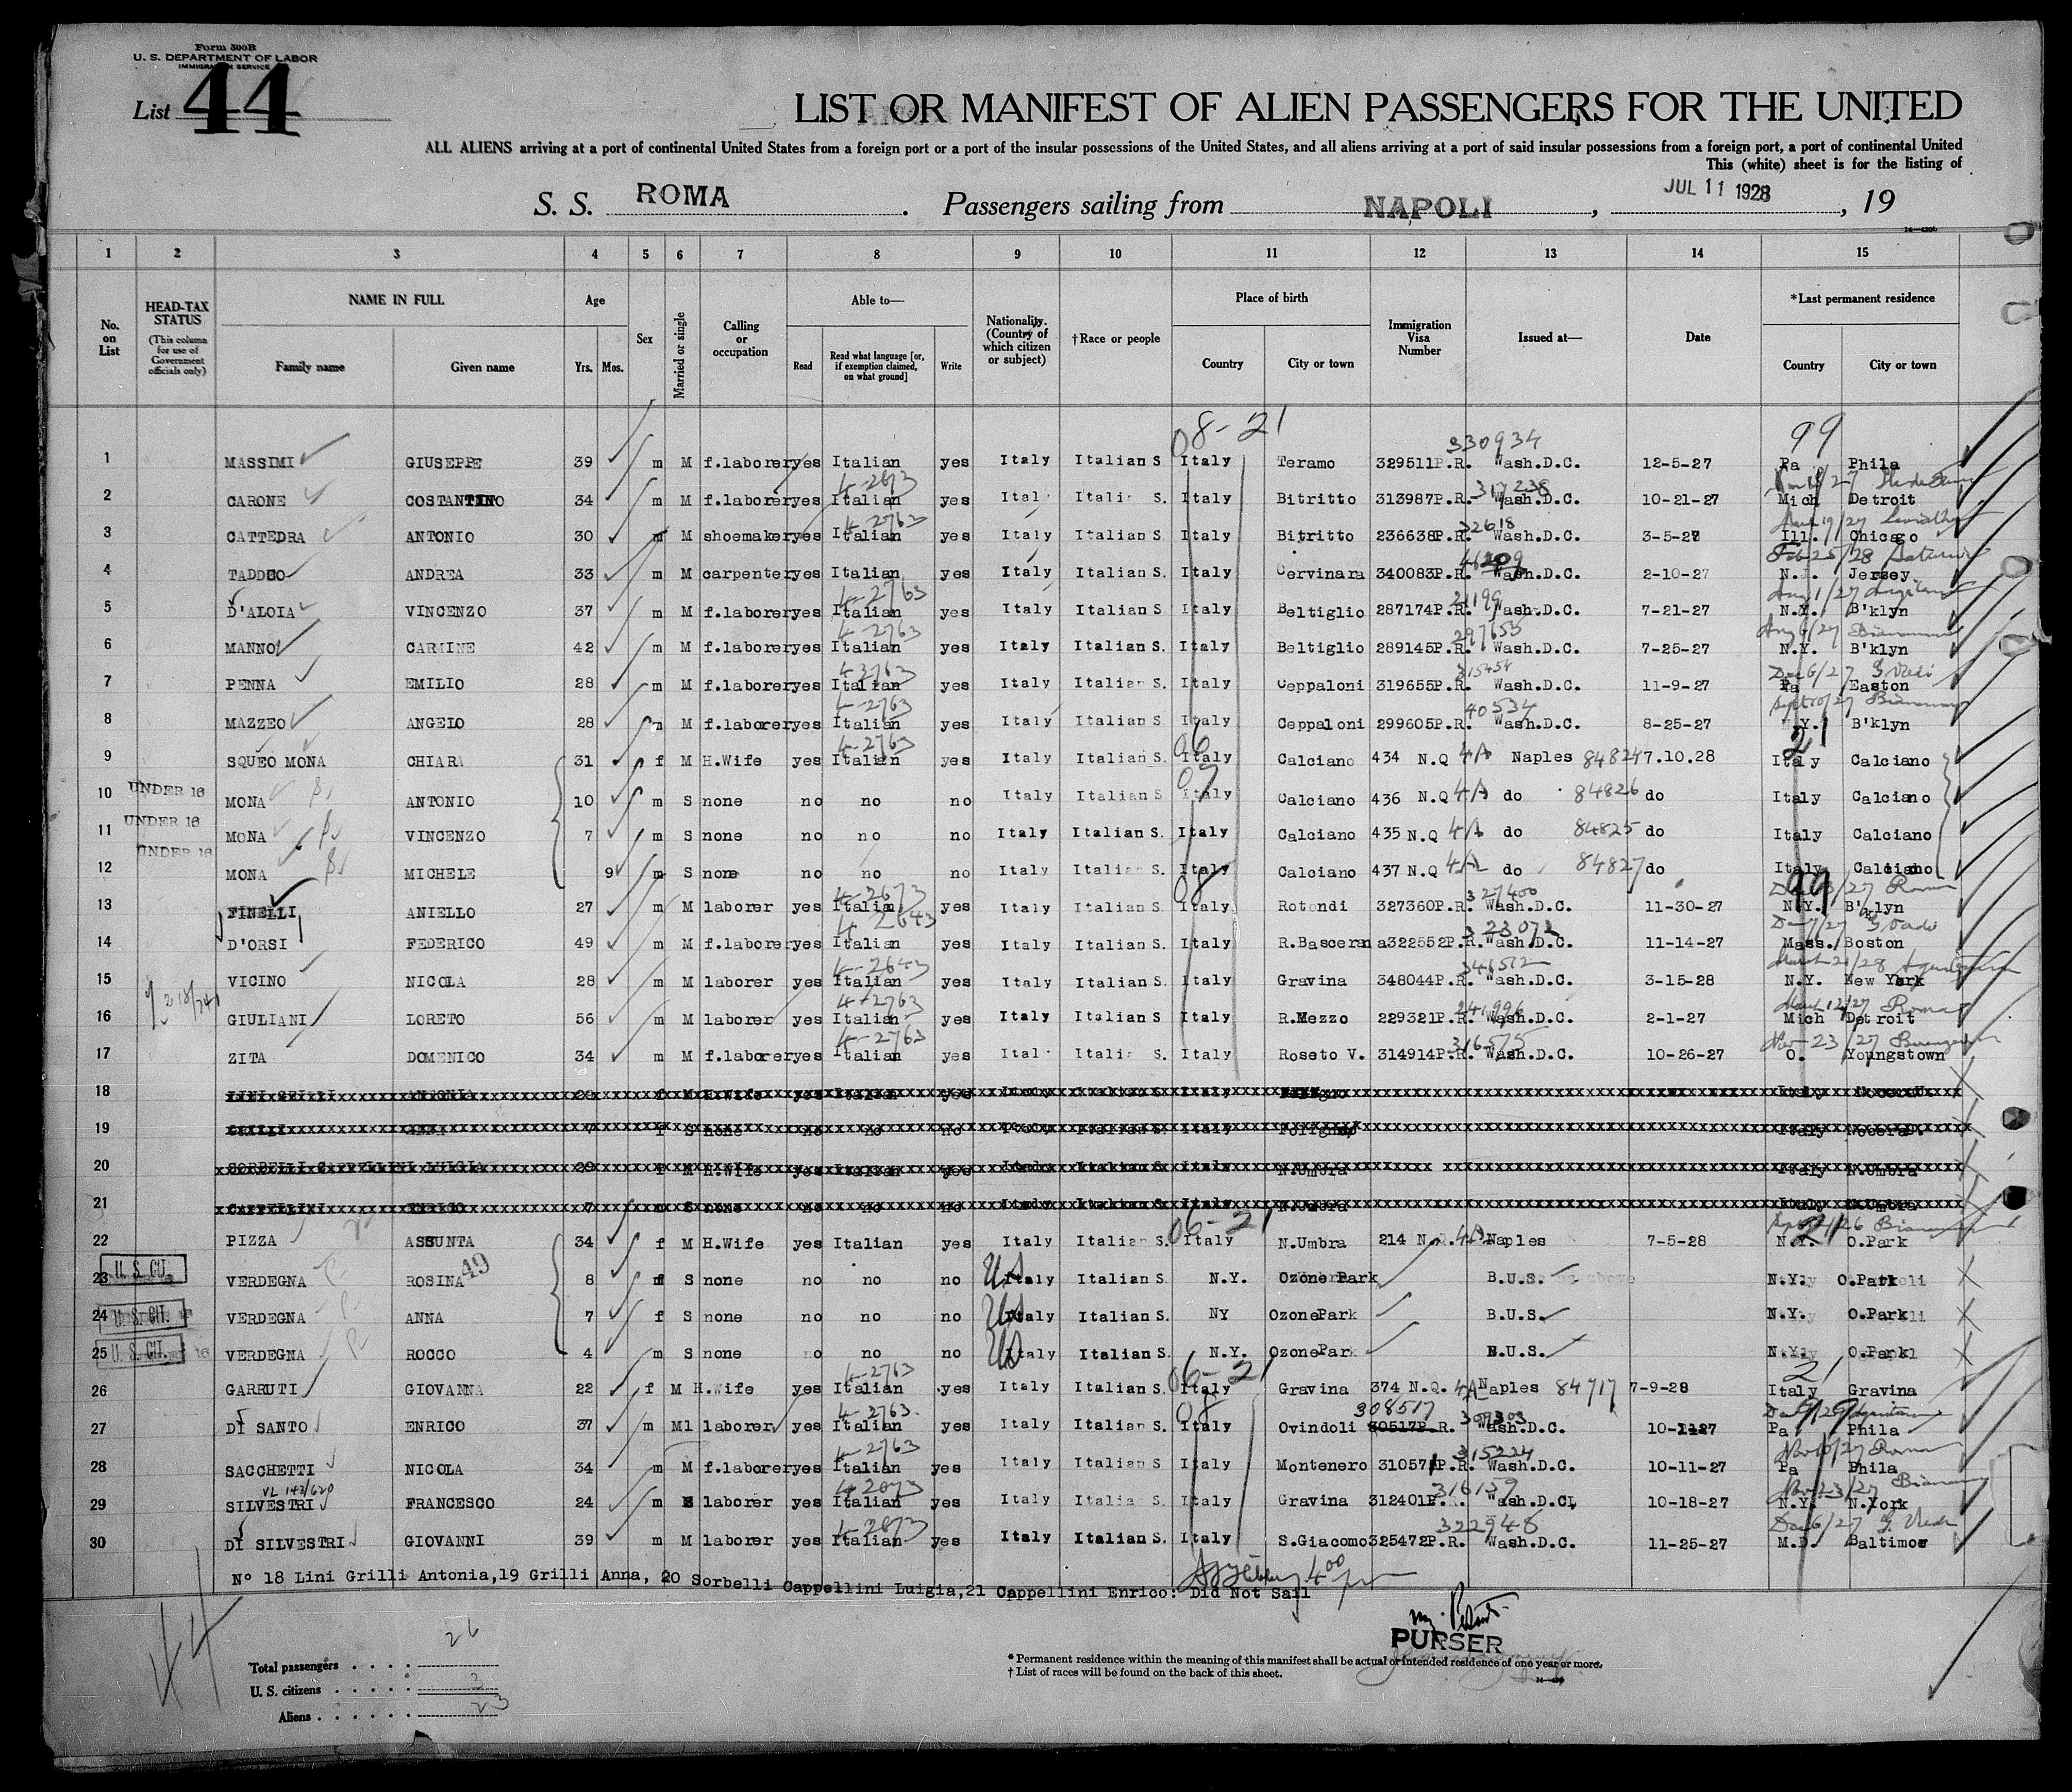 Form 500B
U. S. DEPARTMENT OF LABOR
IMMIGRATION SERVICE
List 44
LIST OR MANIFEST OF ALIEN PASSENGERS FOR THE UNITED
ALL ALIENS arriving at a port of continental United States from a foreign port or a port of the insular possessions of the United States, and all aliens arriving at a port of said insular possessions from a foreign port, a port of continental United
This (white) sheet is for the listing of
S. S. ROMA. Passengers sailing from NAPOLI, JUL 11 1928, 19
1 2 3 4 5 6 7 8 9 10 11 12 13 14 15
No. on List HEAD-TAX STATUS (This column for use of Government officials only) NAME IN FULL Family name Given name Age Yrs. Mos. Sex Married or single Calling or occupation Able to— Read Read what language [or, if exemption claimed, on what ground] Write Nationality. (Country of which citizen or subject) †Race or people Place of birth Country City or town Immigration Visa Number Issued at— Date *Last permanent residence Country City or town
08-21 330934 99
1 MASSIMI GIUSEPPE 39 m M f.laborer yes Italian yes Italy Italian S. Italy Teramo 329511P.R. Wash.D.C. 12-5-27 Pa Phila
4-2673 317238
2 CARONE COSTANTINO 34 m M f.laborer yes Italian yes Italy Italian S. Italy Bitritto 313987P.R. Wash.D.C. 10-21-27 Mich Detroit
4-2763
3 CATTEDRA ANTONIO 30 m M shoemaker yes Italian yes Italy Italian S. Italy Bitritto 236638P.R. Wash.D.C. 3-5-27 Ill. Chicago
4 TADDEO ANDREA 33 m M carpenter yes Italian yes Italy Italian S. Italy Cervinara 340083P.R. Wash.D.C. 2-10-27 N.J. Jersey
4-2763
5 D'ALOIA VINCENZO 37 m M f.laborer yes Italian yes Italy Italian S. Italy Beltiglio 287174P.R. Wash.D.C. 7-21-27 N.Y. B'klyn
4-2763 297653
6 MANNO CARMINE 42 m M f.laborer yes Italian yes Italy Italian S. Italy Beltiglio 289145P.R. Wash.D.C. 7-25-27 N.Y. B'klyn
4-2763 315454
7 PENNA EMILIO 28 m M f.laborer yes Italian yes Italy Italian S. Italy Ceppaloni 319655P.R. Wash.D.C. 11-9-27 Pa Easton
4-2763 40534
8 MAZZEO ANGELO 28 m M f.laborer yes Italian yes Italy Italian S. Italy Ceppaloni 299605P.R. Wash.D.C. 8-25-27 N.Y. B'klyn
4-2763 06 21
9 SQUEO MONA CHIARA 31 f M H.Wife yes Italian yes Italy Italian S. Italy Calciano 434 N.Q 4A Naples 84824 7.10.28 Italy Calciano
UNDER 16
10 MONA ANTONIO 10 m S none no no no Italy Italian S. Italy Calciano 436 N.Q 4A do 84826 do Italy Calciano
UNDER 16
11 MONA VINCENZO 7 m S none no no no Italy Italian S. Italy Calciano 435 N.Q 4A do 84825 do Italy Calciano
UNDER 16
12 MONA MICHELE 9 m S none no no no Italy Italian S. Italy Calciano 437 N.Q 4A do 84827 do Italy Calciano
4-2673 08 327400 99
13 FINELLI ANIELLO 27 m M laborer yes Italian yes Italy Italian S. Italy Rotondi 327360P.R. Wash.D.C. 11-30-27 N.Y. B'klyn
4-2643
14 D'ORSI FEDERICO 49 m M f.laborer yes Italian yes Italy Italian S. Italy R.Bascerana 322552P.R. Wash.D.C. 11-14-27 Mass. Boston
4-2643
15 VICINO NICOLA 28 m M laborer yes Italian yes Italy Italian S. Italy Gravina 348044P.R. Wash.D.C. 3-15-28 N.Y. New York
4-2763
16 GIULIANI LORETO 56 m M laborer yes Italian yes Italy Italian S. Italy R.Mezzo 229321P.R. Wash.D.C. 2-1-27 Mich Detroit
4-2763 316575
17 ZITA DOMENICO 34 m M f.laborer yes Italian yes Italy Italian S. Italy Roseto V. 314914P.R. Wash.D.C. 10-26-27 O. Youngstown
18 LINI GRILLI ANTONIA f M H.Wife yes Italian yes Italy Italian S. Italy Italy
19 GRILLI ANNA 7 f S none no no no Italy Italian S. Italy Foligno Italy
20 SORBELLI CAPPELLINI LUIGIA 29 f M H.Wife yes Italian yes Italy Italian S. Italy N.Umbra Italy N.Umbra
21 CAPPELLINI ENRICO 7 m S none no no no Italy Italian S. Italy N.Umbra Italy N.Umbra
06-21 21
22 PIZZA ASSUNTA 34 f M H.Wife yes Italian yes Italy Italian S. Italy N.Umbra 214 N.Q. 4A Naples 7-5-28 N.Y. O.Park
U. S. CIT.
23 VERDEGNA ROSINA 49 8 f S none no no no US Italy Italian S. N.Y. Ozone Park B.U.S. N.Y. O.Park
U. S. CIT.
24 VERDEGNA ANNA 7 f S none no no no US Italy Italian S. NY OzonePark B.U.S. N.Y. O.Park
U. S. CIT.
25 VERDEGNA ROCCO 4 m S none no no no US Italy Italian S. N.Y. OzonePark B.U.S. N.Y. O.Park
4-2763 06-21 21
26 GARRUTI GIOVANNA 22 f M H.Wife yes Italian yes Italy Italian S. Italy Gravina 374 N.Q. 4A Naples 84717 7-9-28 Italy Gravina
4-2763. 08 308517 99
27 DI SANTO ENRICO 37 m M laborer yes Italian yes Italy Italian S. Italy Ovindoli 30517P.R. Wash.D.C. Pa Phila
4-2763 315224
28 SACCHETTI NICOLA 34 m M f.laborer yes Italian yes Italy Italian S. Italy Montenero 31057 P.R. Wash.D.C. 10-11-27 Pa Phila
VL 143/620 316159
29 SILVESTRI FRANCESCO 24 m S laborer yes Italian yes Italy Italian S. Italy Gravina 312401P.R. Wash.D.C. 10-18-27 N.Y. N.York
322948
30 DI SILVESTRI GIOVANNI 39 m M laborer yes Italian yes Italy Italian S. Italy S.Giacomo 325472P.R. Wash.D.C. 11-25-27 M.D. Baltimoe
N° 18 Lini Grilli Antonia,19 Grilli Anna, 20 Sorbelli Cappellini Luigia,21 Cappellini Enrico: Did Not Sail
44
PURSER
Total passengers . . . . 26
U. S. citizens . . . . . 3
Aliens . . . . . . 23
* Permanent residence within the meaning of this manifest shall be actual or intended residence of one year or more.
† List of races will be found on the back of this sheet.